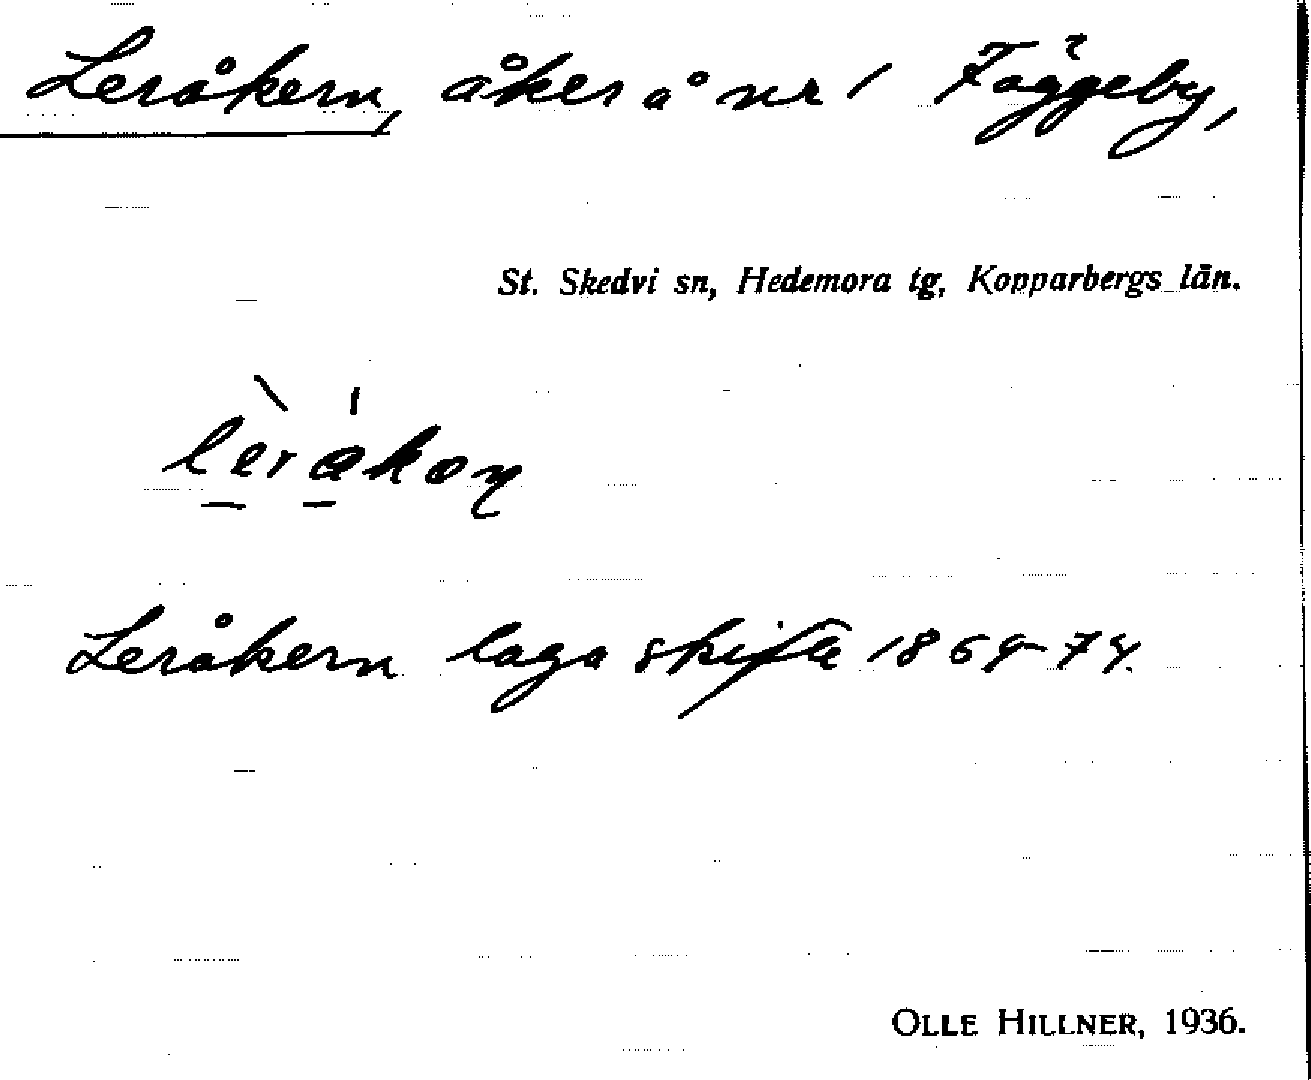 Leråkern, åker å nr 1 Fäggeby,
St. Skedvi sn, Hedemora tg, Kopparbergs län.
Leråkern laga skifte 1869-74.
OLLE HILLNER, 1936.